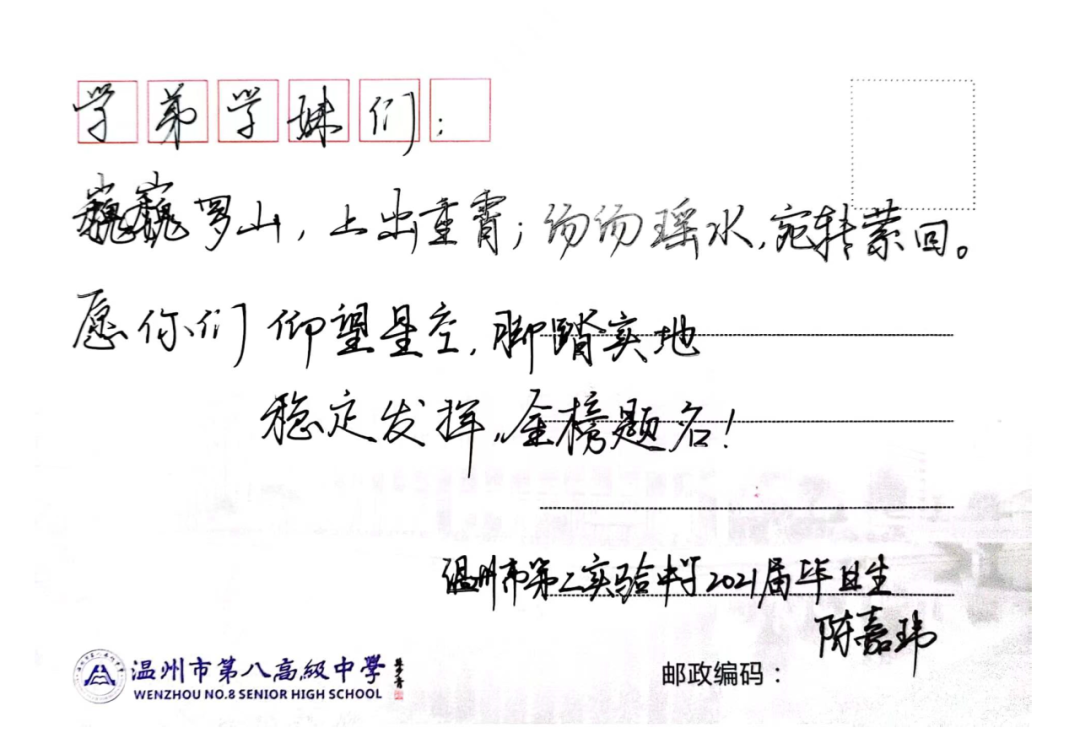 学弟学妹们：
巍巍罗山，上出重霄；汤汤瑶水，宛转萦回。
愿你们仰望星空，脚踏实地
稳定发挥，金榜题名！
温州市第二实验中学2021届毕业生
陈嘉玮
温州市第八高級中學
WENZHOU NO.8 SENIOR HIGH SCHOOL
邮政编码：